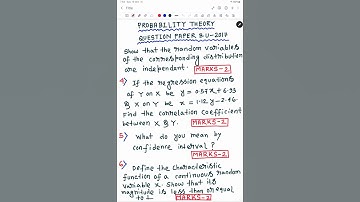 PROBABILITY THEORY
QUESTION PAPER B.U-2017
Show that the random variables
of the corresponding distribution
are independent. MARKS-2
4) If the regression equations
of Y on X be y = 0.57x + 6.93
& X on Y be x = 1.12y - 2.46.
Find the correlation coefficient
between X & Y. MARKS-2
5) What do you mean by
confidence interval? MARKS-2
6) Define the characteristic
function of a continuous random
variable X. Show that its
magnitude is less than or equal
to 1 MARKS-2